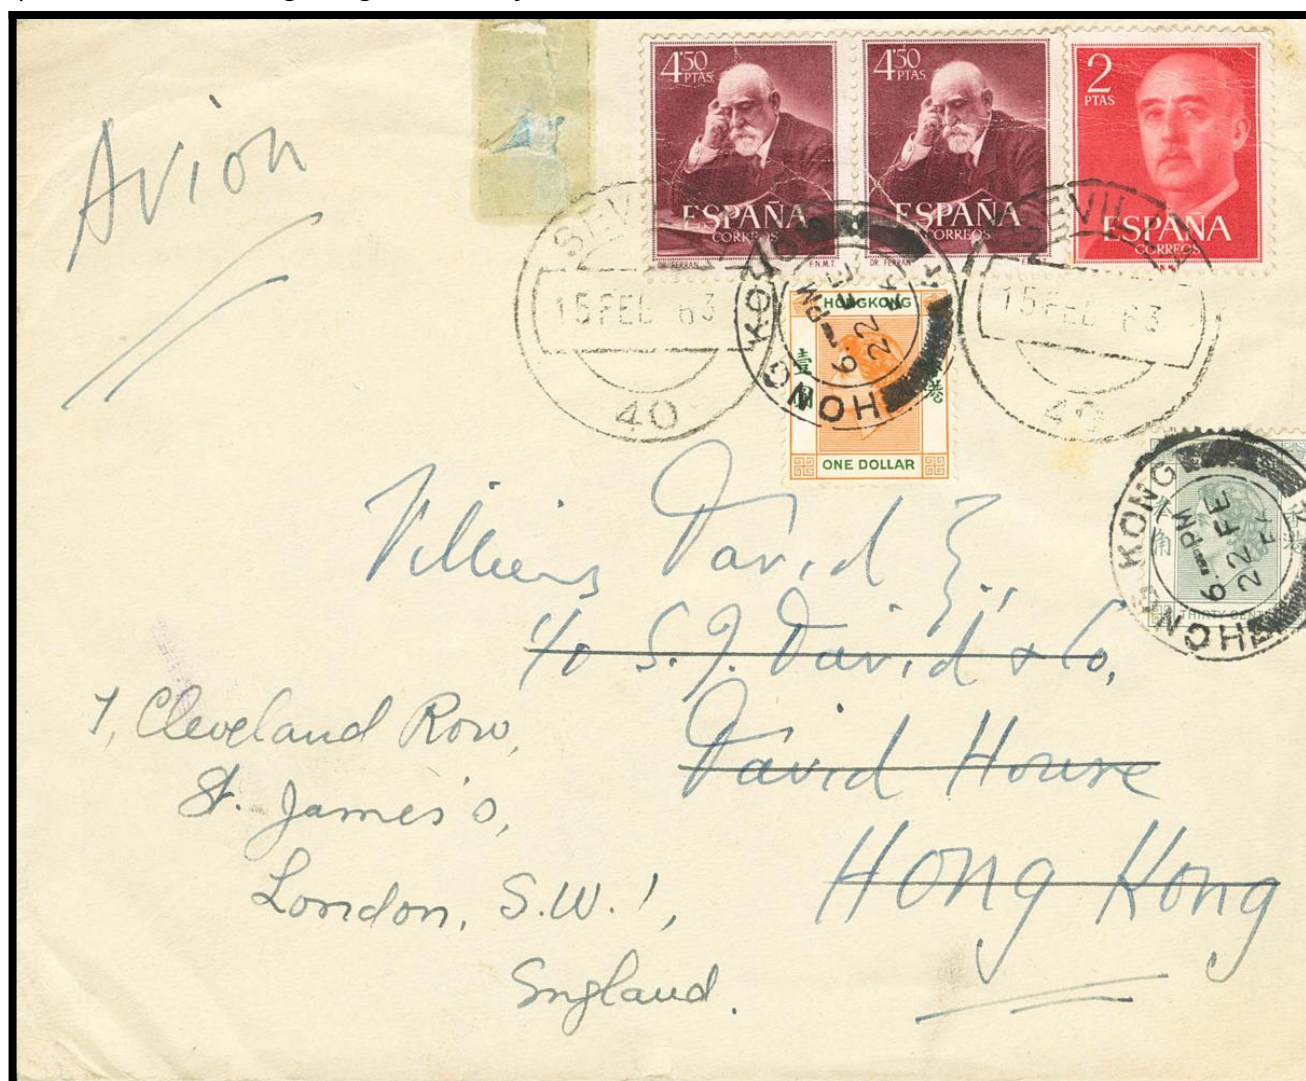 Avion
4'50 PTAS.
ESPAÑA
CORREOS
DR. FERRAN F.N.M.T.
4'50 PTAS.
ESPAÑA
CORREOS
DR. FERRAN
2 PTAS
ESPAÑA
CORREOS
15 FEB 63
40
SEVILLA
15 FEB 63
40
HONG KONG
6 - PM
22 FE
HONG KONG
壹
ONE DOLLAR
HONG KONG
6 - PM
22 FE
角
港
THIRTY CENTS
Villiers David E.
c/o S. J. David & Co,
David House
Hong Kong
7, Cleveland Row,
St. James's,
London, S.W. 1,
England.